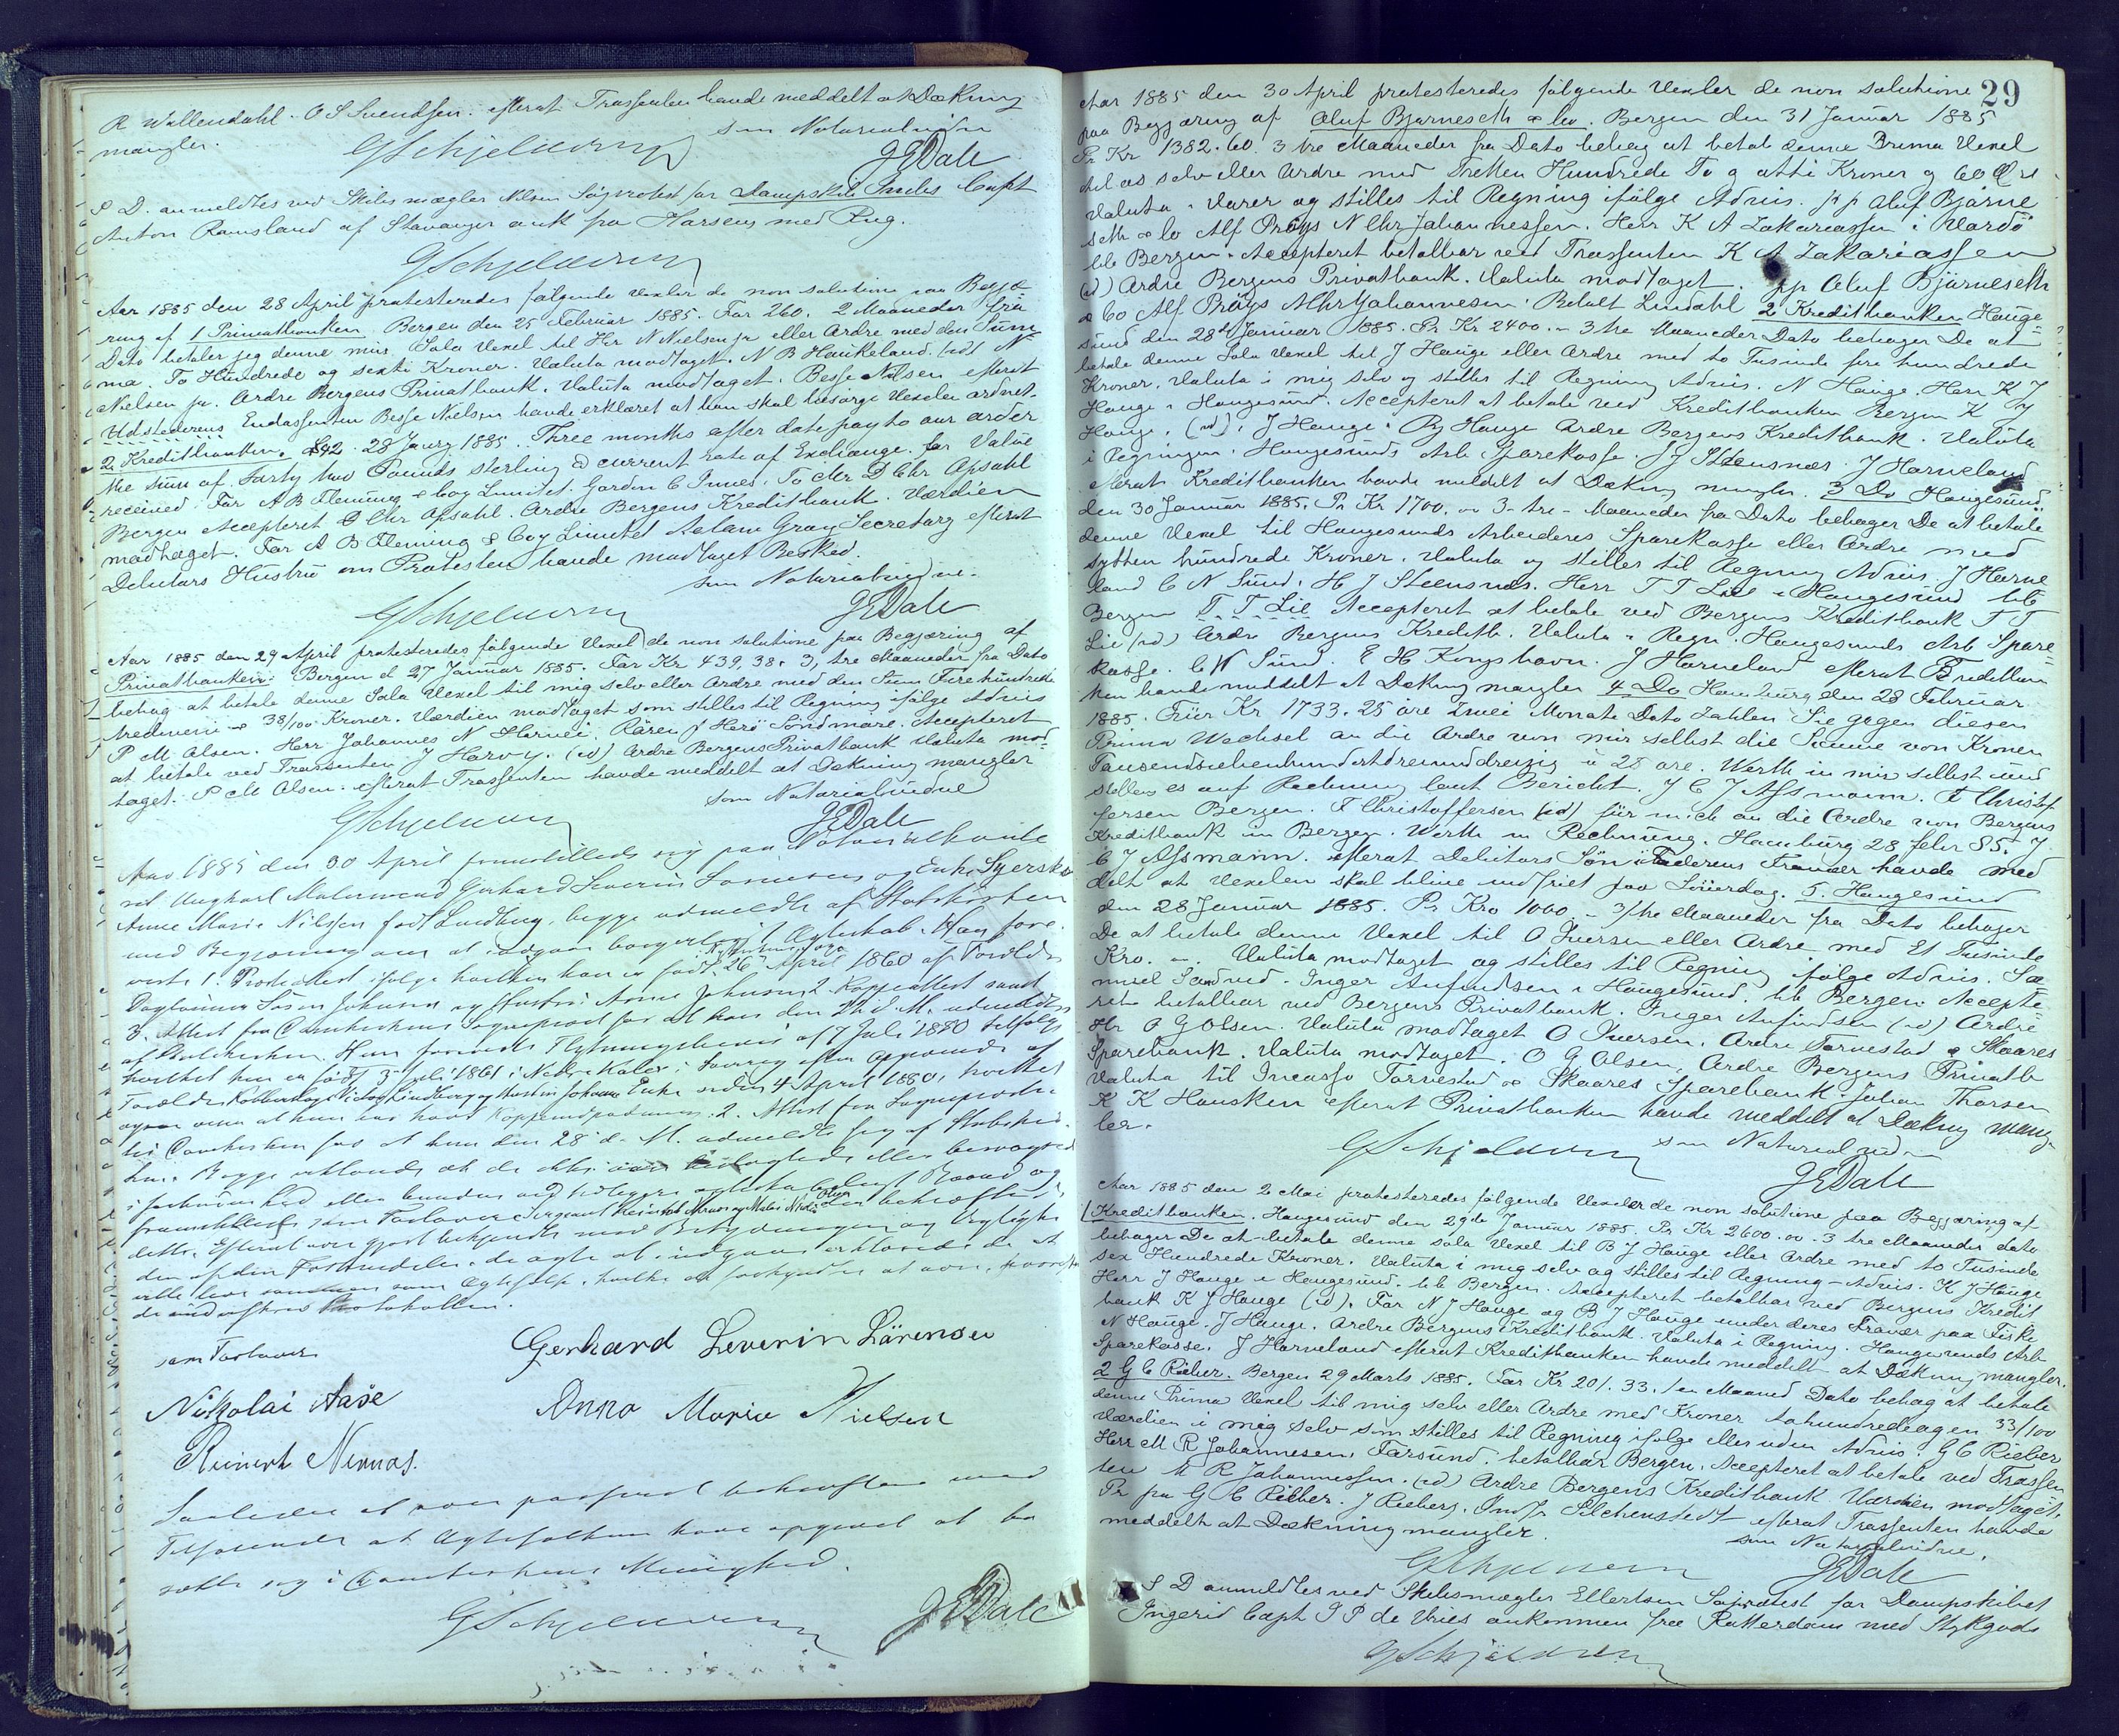 R Wallendahl. O S Svendsen. efterat Trassenten havde meddelt at Dækning
mangler.
som Notarialvidne
GSchjelderup
JEDale
S D. anmeldtes ved Skibsmægler Nilsen Søprotest for Dampskib Capt
Anton Ramsland af Stavanger ank fra Horsens med Rug.
GSchjelderup
Aar 1885 den 28 April protesteredes følgende Vexler de non solutione paa Begjæ
ring af 1 Privatbanken. Bergen den 25 Februar 1885. For 260. 2 Maaneder fra
Dato betaler jeg denne min Sola Vexel til Hr N Nielsen jr eller Ordre med den Sum
ma To Hundrede og sexti Kroner. Valuta modtaget. N B Haukeland. (vd) N
Nielsen jr. Ordre Bergens Privatbank. Valuta modtaget. Besse Nilsen efterat
Udstederens Endossenten Besse Nielsen havde erklæret at han skal besørge Vexelen ordnet.
2 Kreditbanken. £42. 28 Janry 1885. Three months after date pay to our order
the sum of Forty two Pounds sterling @ current rate of Exchange for Value
received. For A B Fleming & Coy Limited. Gordon C Innes. To Mr D Chr Opsahl
Bergen Accepteret D Chr Opsahl. Ordre Bergens Kreditbank. Værdien
modtaget. For A B Fleming & Coy Limited Adam Gray Secretary efterat
Debitors Hustru om Protesten havde modtaget Besked.
som Notarialvidne.
GSchjelderup
JEDale
Aar 1885 den 29 April protesteredes følgende Vexel de non solutione paa Begjæring af
Privatbanken. Bergen d 27 Januar 1885. For Kr 439,38. 3, tre Maaneder fra Dato
behag at betale denne Sola Vexel til mig selv eller Ordre med den Sum Firehundrede
tredveni & 38/100 Kroner. Værdien modtaget som stilles til Regning ifølge Advis
P M Olsen. Herr Johannes N Hornei, Herø Søndmøre. Accepteret
at betale ved Trassenten J (vd) Ordre Bergens Privatbank Valuta mod-
taget. P M Olsen. efterat Trassenten havde meddelt at Dækning mangler
som Notarialvidne
GSchjelderup
JEDale
Aar 1885 den 30 April fremstillede sig paa Notarialkonto
ret Ungkarl Gerhard Severin Sørensen og Enke
Anne Marie Nilssen født Lundberg, begge udmeldte af Statskirken
med Begjæring om at indgaa borgerligt Ægteskab. Han fore-
viste 1. ifølge hvilken han er født 26 April 1860 af Forældre
Johnsen og Hustru Anne Johnsen 2. Koppeattest samt
3. Attest fra Domkirkens Sogneprest for at han den d. M. udmeldtes
af Statskirken. Hun foreviste Flytningsbevis af 7 Juli 1880 ifølge
hvilket hun er født 3 Juli 1861 i
Forældre Lindberg og Hustru Johanne Enke siden 4 April 1880, hvilket
ogsaa viser at hun har havt 2. Attest fra Sogneprest
til Domkirken for at hun den 28 d. M. udmeldte sig af Statskir-
ken. Begge erklærede at de ikke vare beslægtede eller besvogrede
i forbudne Led eller bundne ved tidligere Ægteskabeligt Baand og
fremstillede som Forlovere Sergeant Reinert og Nicolai der bekræftede
dette. Efterat være gjort bekjendt med Betydningen og Vigtighe-
den af den Forbindelse, de agte at indgaa erklærede de at
ville leve sammen som Ægtefolk, hvilke
de underskrev Protokollen.
som Forlovere
Gerhard Severin Sørensen
Nikolai Aase
Anna Marie Nielsen
Reinert
Saaledes at være passeret bekræftes med
Tilføiende at Ægtefolkene have opgivet at bo-
sætte sig i Domkirkens Menighed.
GSchjelderup
JEDale
29
Aar 1885 den 30 April protesteredes følgende Vexler de non solutione
paa Begjæring af Oluf Bjørneseth & Co. Bergen den 31 Januar 1885
Pr Kr 1382.60. 3 tre Maaneder fra Dato behag at betale denne Prima Vexel
til os selv eller Ordre med Tretten Hundrede To og otti Kroner og 60 Øre
Valuta i Varer og stilles til Regning ifølge Advis. pp Oluf Bjørne
seth & Co Alf Prøys N Chr Johannessen. Herr K A Zakariassen i Vardø
bb Bergen. Accepteret betalbar ved Trassenten K A Zakariassen
(vd) Ordre Bergens Privatbank. Valuta modtaget. pp Oluf Bjørneseth
& Co Alf Prøys N Chr Johannesen. Betalt Lindahl 2 Kreditbanken Hauge-
sund den 28de Januar 1885. Pr Kr 2400.- 3 tre Maaneder Dato behager De at
betale denne Sola Vexel til J Hauge eller Ordre med to Tusinde fire hundrede
Kroner. Valuta i mig selv og stilles til Regning Advis. N Hauge. Herr K J
Hauge i Haugesund. Accepteret at betale ved Kreditbanken Bergen K J
Hauge. (vd). J Hauge. Bj Hauge Ordre Bergens Kreditbank. Valuta
i Regningen. Haugesunds Arb Sparekasse. J J Steensnæs. J Horneland
efterat Kreditbanken havde meddelt at Dækning mangler. 3 Do Haugesund
den 30 Januar 1885. Pr Kr 1700. 3- tre- Maaneder fra Dato behager De at betale
denne Vexel til Haugesunds Arbeideres Sparekasse eller Ordre med
sytten hundrede Kroner. Valuta og stilles til Regning Advis J Horne
land C N Sund. H J Steensnæs. Herr T T Lie i Haugesund bb
Bergen T T Lie Accepteret at betale ved Bergens Kreditbank T T
Lie (vd) Ordre Bergens Kreditb. Valuta i Regn. Haugesunds Arb Spare-
kasse. C N Sund. E H Kongshavn. J Horneland efterat Kreditban
ken havde meddelt at Dækning mangler 4 Do Hamburg den 28 Februar
1885. Für Kr 1733.25 øre Zwei Monate Dato Zahlen Sie gegen diesen
Prima Wechsel an die Ordre von mir selbst die Summe von Kronen
Tausendsiebenhundertdreiunddreizig u 25 øre. Werth in mir selbst und
stellen es auf Rechnung laut Bericht. J C J Assmann. F Christof
fersen Bergen. F Christoffersen (vd) für mich an die Ordre von Bergens
Kreditbank in Bergen. Werth in Rechnung. Hamburg 28 Febr 85. J
C J Assmann. efterat Debitors Søn i Faderens Fravær havde med
delt at Vexelen skal blive indfriet paa Løverdag. 5. Haugesund
den 28 Januar 1885. Pr Kro 1000 - 3/tre Maaneder fra Dato behager
De at betale denne Vexel til O Iversen eller Ordre med Et Tusinde
Kro. Valuta modtaget og stilles til Regning ifølge Advis. Sa-
muel Sandved. Inger Anfindsen i Haugesund bb Bergen. Accepte
ret betalbar ved Bergens Privatbank. Inger Anfindsen (vd) Ordre
Hr O G Olsen. Valuta modtaget O Iversen. Ordre Torvestad & Skaares
Sparebank. Valuta modtaget. O G Olsen. Ordre Bergens Privatb
Valuta til Incasso Torvestad & Skaares Sparebank. Johan Thorsen
K K Hausken efterat Privatbanken havde meddelt at Dækning mang-
ler.
som Notarialvidne
GSchjelderup
JEDale
Aar 1885 den 2 Mai protesteredes følgende Vexler de non solutione paa Begjæring af
1 Kreditbanken. Haugesund den 29de Januar 1885. Pr Kr 2600.00. 3 tre Maaneder dato
behager De at betale denne sola Vexel til B J Hauge eller Ordre med to Tusinde
sex Hundrede Kroner. Valuta i mig selv og stilles til Regning - Advis. K J Hauge
Herr J Hauge i Haugesund. bb Bergen. Accepteret betalbar ved Bergens Kredit
bank K J Hauge (vd). For N J Hauge og B J Hauge under deres Fravær paa Fiske
N Hauge. J Hauge. Ordre Bergens Kreditbank. Valuta i Regning. Haugesunds Arb
Sparekasse. J Horneland efterat Kreditbanken havde meddelt at Dækning mangler.
2 G C Rieber. Bergen 29 Marts 1885. For Kr 201.33. 1 en Maaned Dato behag at betale
denne Prima Vexel til mig selv eller Ordre med Kroner tohundredeogen 33/100
Værdien i mig selv som stilles til Regning ifølge eller uden Advis. G C Rieber
Herr M R Johannesen, Farsund. betalbar Bergen. Accepteret at betale ved Trassen
ten M R Johannessen. (vd) Ordre Bergens Kreditbank Værdien modtaget.
Pr pa G C Rieber. J Rieberg. efterat Trassenten havde
meddelt at Dækning mangler.
som Notarialvidne.
GSchjelderup
JEDale
S D anmeldtes ved Skibsmægler Ellertsen Søprotest for Dampskibet
Ingerid Capt I P de Vries ankommen fra Rotterdam med Stykgods
GSchjelderup